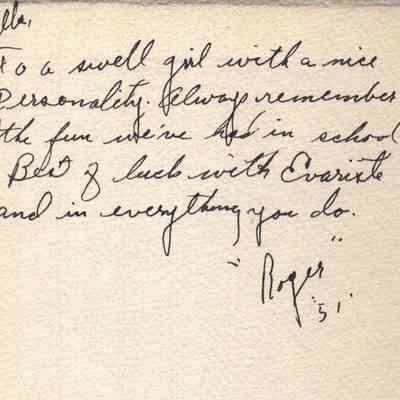 lla,
To a swell girl with a nice
Personality. Always remember
the fun we've had in school
Best of luck with Evariste
and in everything you do.
" Roger "
'51'